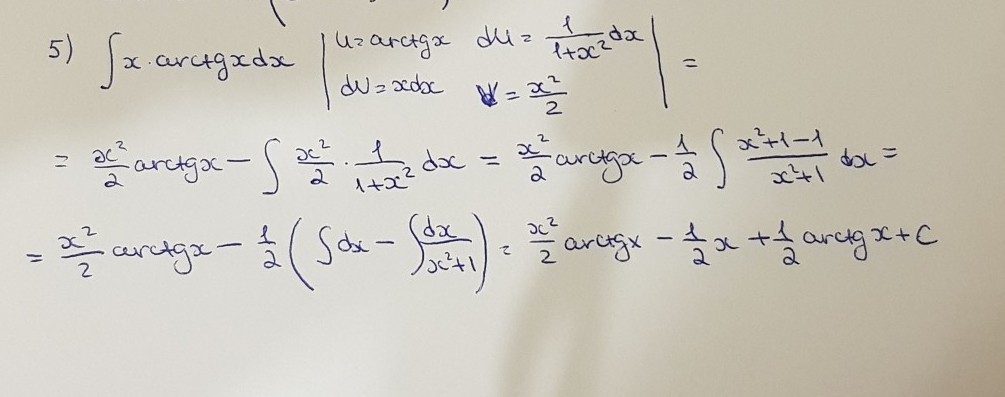 5) ∫ x · arctgx dx | u = arctgx du = 1/(1+x²) dx | =
dv = xdx v = x²/2
= x²/2 arctgx − ∫ x²/2 · 1/(1+x²) dx = x²/2 arctgx − 1/2 ∫ (x²+1−1)/(x²+1) dx =
= x²/2 arctgx − 1/2 ( ∫ dx − ∫ dx/(x²+1) ) = x²/2 arctgx − 1/2 x + 1/2 arctg x + C